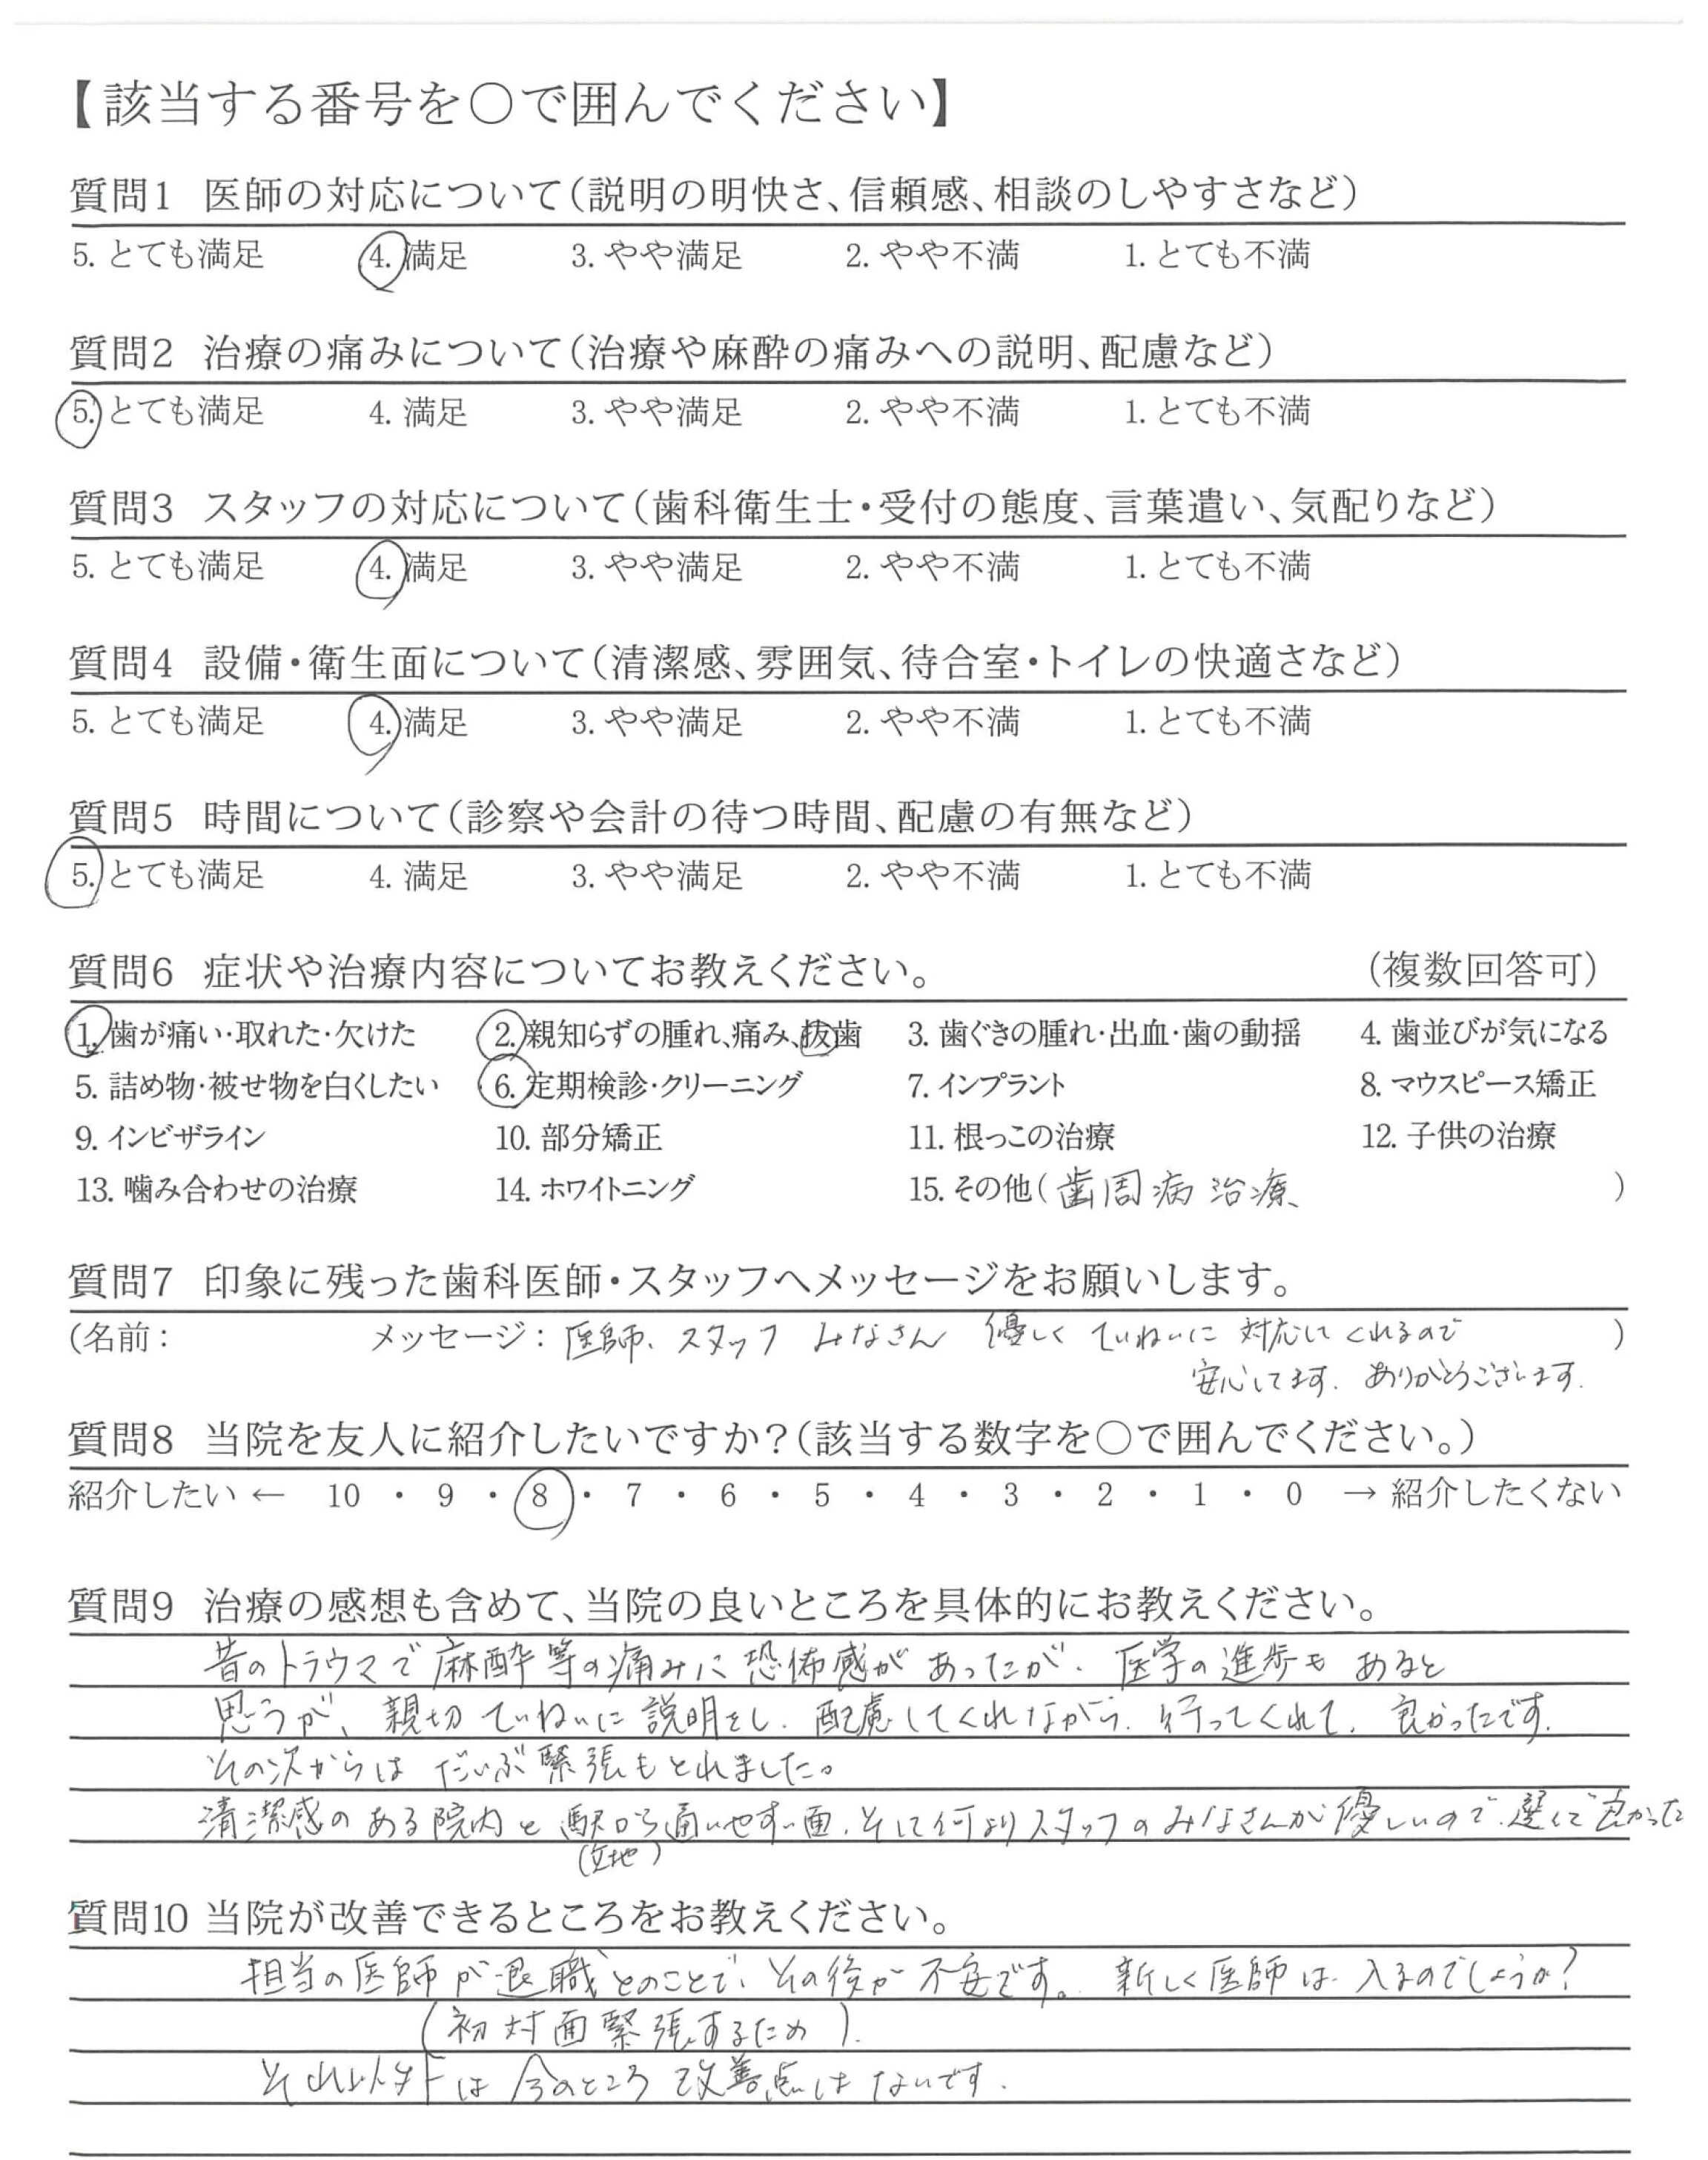 【該当する番号を〇で囲んでください】
質問1 医師の対応について(説明の明快さ、信頼感、相談のしやすさなど)
5. とても満足 4. 満足 3. やや満足 2. やや不満 1. とても不満
質問2 治療の痛みについて(治療や麻酔の痛みへの説明、配慮など)
5. とても満足 4. 満足 3. やや満足 2. やや不満 1. とても不満
質問3 スタッフの対応について(歯科衛生士・受付の態度、言葉遣い、気配りなど)
5. とても満足 4. 満足 3. やや満足 2. やや不満 1. とても不満
質問4 設備・衛生面について(清潔感、雰囲気、待合室・トイレの快適さなど)
5. とても満足 4. 満足 3. やや満足 2. やや不満 1. とても不満
質問5 時間について(診察や会計の待つ時間、配慮の有無など)
5. とても満足 4. 満足 3. やや満足 2. やや不満 1. とても不満
質問6 症状や治療内容についてお教えください。 (複数回答可)
1. 歯が痛い・取れた・欠けた 2. 親知らずの腫れ、痛み、抜歯 3. 歯ぐきの腫れ・出血・歯の動揺 4. 歯並びが気になる
5. 詰め物・被せ物を白くしたい 6. 定期検診・クリーニング 7. インプラント 8. マウスピース矯正
9. インビザライン 10. 部分矯正 11. 根っこの治療 12. 子供の治療
13. 噛み合わせの治療 14. ホワイトニング 15. その他(歯周病治療 )
質問7 印象に残った歯科医師・スタッフへメッセージをお願いします。
(名前: メッセージ: 医師、スタッフ みなさん 優しく ていねいに 対応してくれるので )
安心してます. ありがとうございます.
質問8 当院を友人に紹介したいですか?(該当する数字を〇で囲んでください。)
紹介したい ← 10 ・ 9 ・ 8 ・ 7 ・ 6 ・ 5 ・ 4 ・ 3 ・ 2 ・ 1 ・ 0 → 紹介したくない
質問9 治療の感想も含めて、当院の良いところを具体的にお教えください。
昔のトラウマで麻酔等の痛みに恐怖感があったが、医学の進歩もあると
思うが、親切ていねいに説明をし、配慮してくれながら、行ってくれて、良かったです.
その次からは だいぶ緊張もとれました。
清潔感のある院内と駅から通いやすい面、そして何よりスタッフのみなさんが優しいので、選んで良かった
(立地)
質問10 当院が改善できるところをお教えください。
担当の医師が退職とのことで、その後が不安です。新しく医師は入るのでしょうか?
(初対面緊張するため).
それ以外は今のところ改善点はないです.